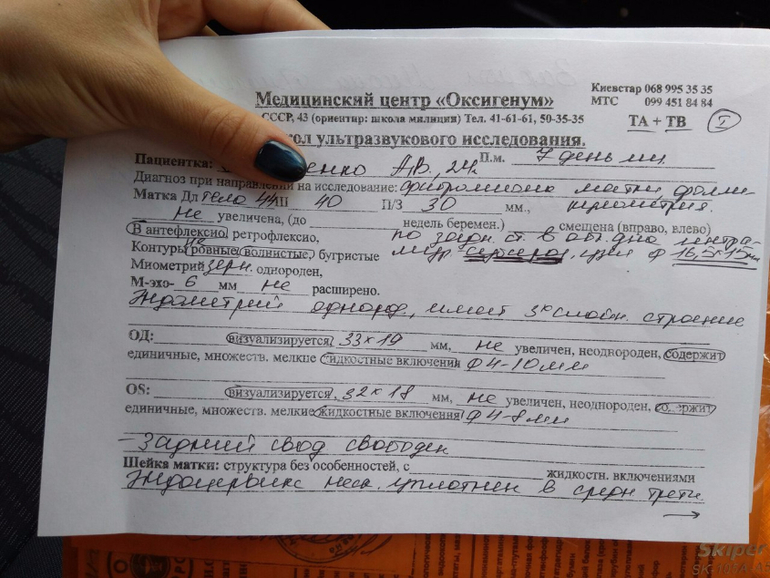 Киевстар 068 995 35 35
Медицинский центр «Оксигенум» МТС 099 451 84 84
СССР, 43 (ориентир: школа милиции) Тел. 41-61-61, 50-35-35 ТА + ТВ I
ол ультразвукового исследования.
Пациентка: енко А.В, 24. П.м. 7 день мц
Диагноз при направлении на исследование: фибромиома матки
Матка Дл тело 44 Ш 40 П/З 30 мм.,
не увеличена, (до недель беремен.) смещена (вправо, влево)
В антефлексио, ретрофлексио, по задн. ст. в обл. дна
Контуры не ровные, волнистые, бугристые ф 16,5х15мм
Миометрий зерн. однороден,
М-эхо- 6 мм не расширено.
Эндометрий однород, имеет 3х слойн. строение
ОД: визуализируется, 33х19 мм, не увеличен, неоднороден, содержит
единичные, множеств. мелкие жидкостные включения ф 4-10мм
OS: визуализируется, 32х18 мм, не увеличен, неоднороден, содержит
единичные, множеств. мелкие жидкостные включения ф 4-8мм
- Задний свод свободен
Шейка матки: структура без особенностей, с жидкостн. включениями
Эндоцервикс неск. уплотнен в средн трети
→
Skiper